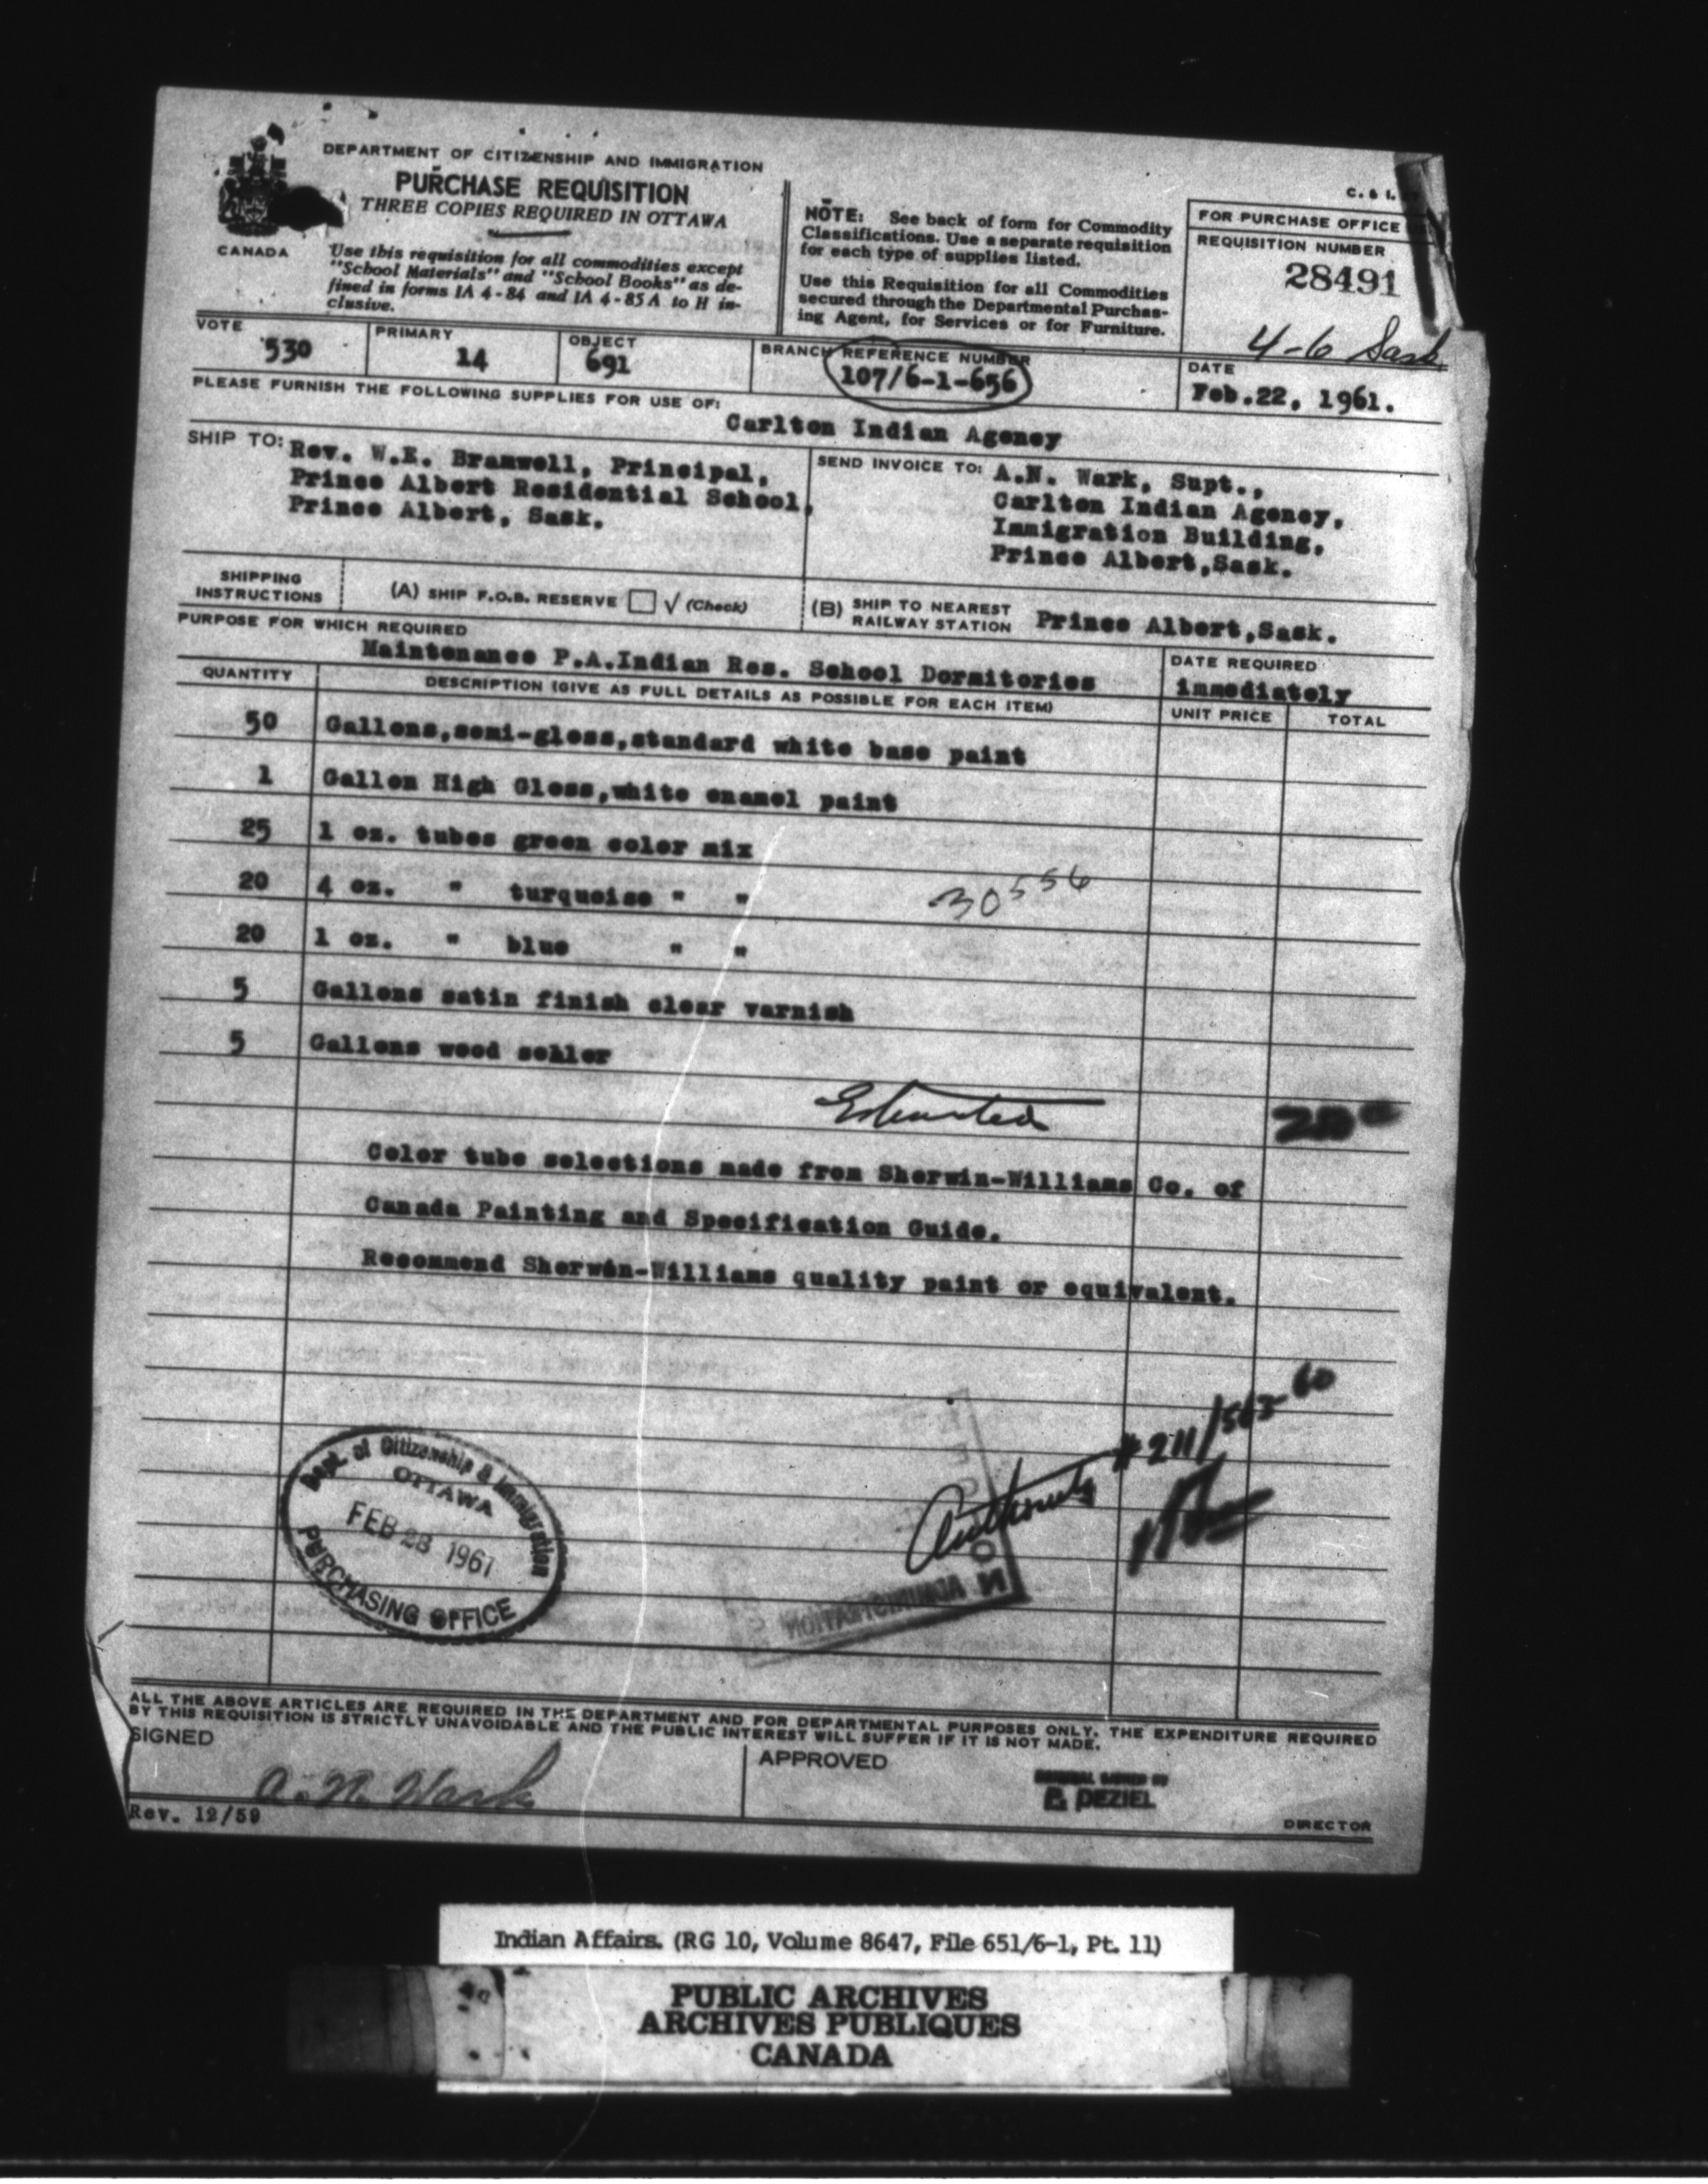 DEPARTMENT OF CITIZENSHIP AND IMMIGRATION
PURCHASE REQUISITION
THREE COPIES REQUIRED IN OTTAWA
CANADA
Use this requisition for all commodities except
"School Materials" and "School Books" as de-
fined in forms IA 4-84 and IA 4-85 A to H in-
clusive.
NOTE: See back of form for Commodity
Classifications. Use a separate requisition
for each type of supplies listed.
Use this Requisition for all Commodities
secured through the Departmental Purchas-
ing Agent, for Services or for Furniture.
C. & I.
FOR PURCHASE OFFICE
REQUISITION NUMBER
28491
4-6 Sask
VOTE 530
PRIMARY 14
OBJECT 691
BRANCH REFERENCE NUMBER
107/6-1-656
DATE
Feb.22, 1961.
PLEASE FURNISH THE FOLLOWING SUPPLIES FOR USE OF:
Carlton Indian Agency
SHIP TO: Rev. W.E. Bramwell, Principal,
Prince Albert Residential School,
Prince Albert, Sask.
SEND INVOICE TO: A.N. Wark, Supt.,
Carlton Indian Agency,
Immigration Building,
Prince Albert,Sask.
SHIPPING
INSTRUCTIONS
(A) SHIP F.O.B. RESERVE √ (Check)
(B) SHIP TO NEAREST
RAILWAY STATION Prince Albert,Sask.
PURPOSE FOR WHICH REQUIRED
Maintenance P.A.Indian Res. School Dormitories
DATE REQUIRED
immediately
QUANTITY
DESCRIPTION (GIVE AS FULL DETAILS AS POSSIBLE FOR EACH ITEM)
UNIT PRICE
TOTAL
50 Gallons,semi-gloss,standard white base paint
1 Gallon High Gloss,white enamel paint
25 1 oz. tubes green color mix
20 4 oz. " turquoise " "
30556
20 1 oz. " blue " "
5 Gallons satin finish clear varnish
5 Gallons wood sehler
Estimated
Color tube selections made from Sherwin-Williams Co. of
Canada Painting and Specification Guide.
Recommend Sherwin-Williams quality paint or equivalent.
Authority #211/563-60
Dept. of Citizenship & Immigration
OTTAWA
FEB 28 1961
PURCHASING OFFICE
ALL THE ABOVE ARTICLES ARE REQUIRED IN THE DEPARTMENT AND FOR DEPARTMENTAL PURPOSES ONLY. THE EXPENDITURE REQUIRED
BY THIS REQUISITION IS STRICTLY UNAVOIDABLE AND THE PUBLIC INTEREST WILL SUFFER IF IT IS NOT MADE.
SIGNED
A. N. Wark
APPROVED
DEZIEL
DIRECTOR
Rev. 12/59
Indian Affairs. (RG 10, Volume 8647, File 651/6-1, Pt. 11)
PUBLIC ARCHIVES
ARCHIVES PUBLIQUES
CANADA